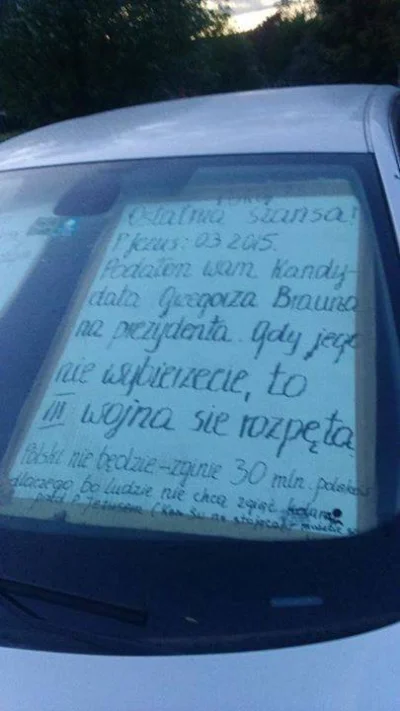 Ostatnia szansa!
P. Jezus: 03 2015.
Podałem wam Kandy-
data Grzegorza Brauna
na prezydenta. Gdy jego
nie wybierzecie, to
III wojna się rozpęta
Polski nie będzie - zginie 30 mln. polaków
dlaczego bo ludzie nie chcą zgiąć kolan
przed P. Jezusem (Kom. Św. na stojąco